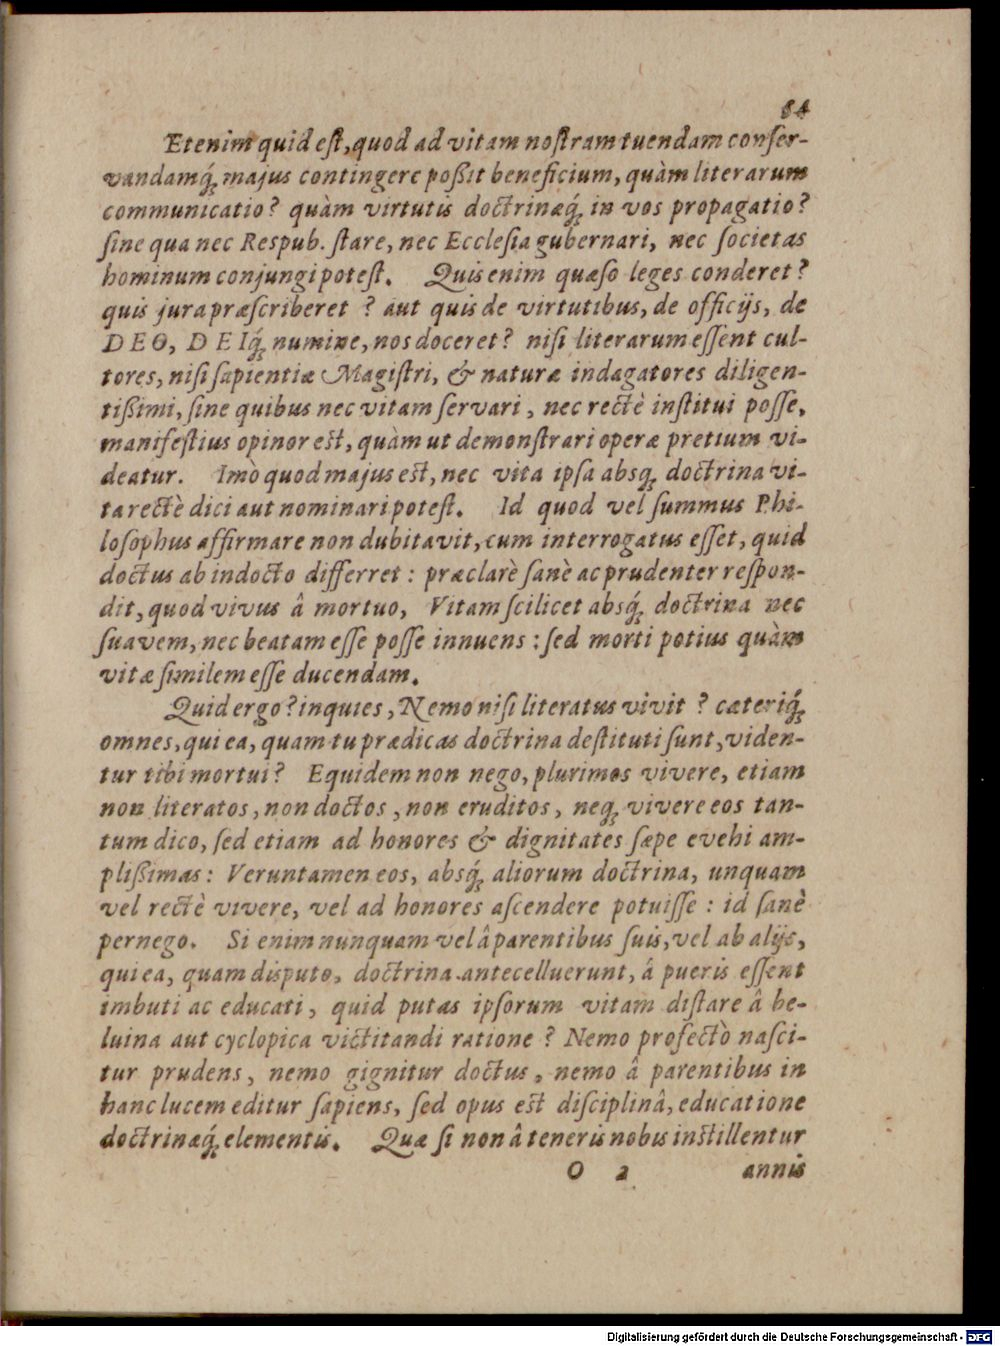 84
Etenim quid eſt, quod ad vitam noſtram tuendam conſer-
vandamq́ꝫ majus contingere poßit beneficium, quàm literarum
communicatio? quàm virtutis doctrinæq́ꝫ in vos propagatio?
ſine qua nec Respub. ſtare, nec Eccleſia gubernari, nec ſocietas
hominum conjungi poteſt. Quis enim quæſo leges conderet?
quis jura præſcriberet? aut quis de virtutibus, de officijs, de
DEO, DEIq́ꝫ numine, nos doceret? niſi literarum eſſent cul-
tores, niſi ſapientiæ Magiſtri, & naturæ indagatores diligen-
tißimi, ſine quibus nec vitam ſervari, nec rectè inſtitui poſſe,
manifeſtius opinor est, quàm ut demonſtrari operæ pretium vi-
deatur. Imò quod majus est, nec vita ipſa absqꝫ doctrina vi-
ta rectè dici aut nominari poteſt. Id quod vel ſummus Phi-
loſophus affirmare non dubitavit, cum interrogatus eſſet, quid
doctus ab indocto differret: præclarè ſanè ac prudenter reſpon-
dit, quod vivus â mortuo, Vitam ſcilicet absq́ꝫ doctrina nec
ſuavem, nec beatam eſſe poſſe innuens: ſed morti potius quàm
vitæ ſimilem eſſe ducendam.
Quid ergo? inquies, Nemo niſi literatus vivit? cæteriq́ꝫ
omnes, qui ea, quam tu prædicas doctrina deſtituti ſunt, viden-
tur tibi mortui? Equidem non nego, plurimos vivere, etiam
non literatos, non doctos, non eruditos, neqꝫ vivere eos tan-
tum dico, ſed etiam ad honores & dignitates ſæpe evehi am-
plißimas: Veruntamen eos, absq́ꝫ aliorum doctrina, unquam
vel rectè vivere, vel ad honores aſcendere potuiſſe: id ſanè
pernego. Si enim nunquam vel â parentibus ſuis, vel ab alijs,
qui ea, quam disputo, doctrina antecelluerunt, â pueris eſſent
imbuti ac educati, quid putas ipſorum vitam diſtare â be-
luina aut cyclopica victitandi ratione? Nemo profectò naſci-
tur prudens, nemo gignitur doctus, nemo â parentibus in
hanc lucem editur ſapiens, ſed opus est diſciplinâ, educatione
doctrinæq́ꝫ elementis. Quæ ſi non â teneris nobis inſtillentur
O 2 annis
Digitalisierung gefördert durch die Deutsche Forschungsgemeinschaft - DFG